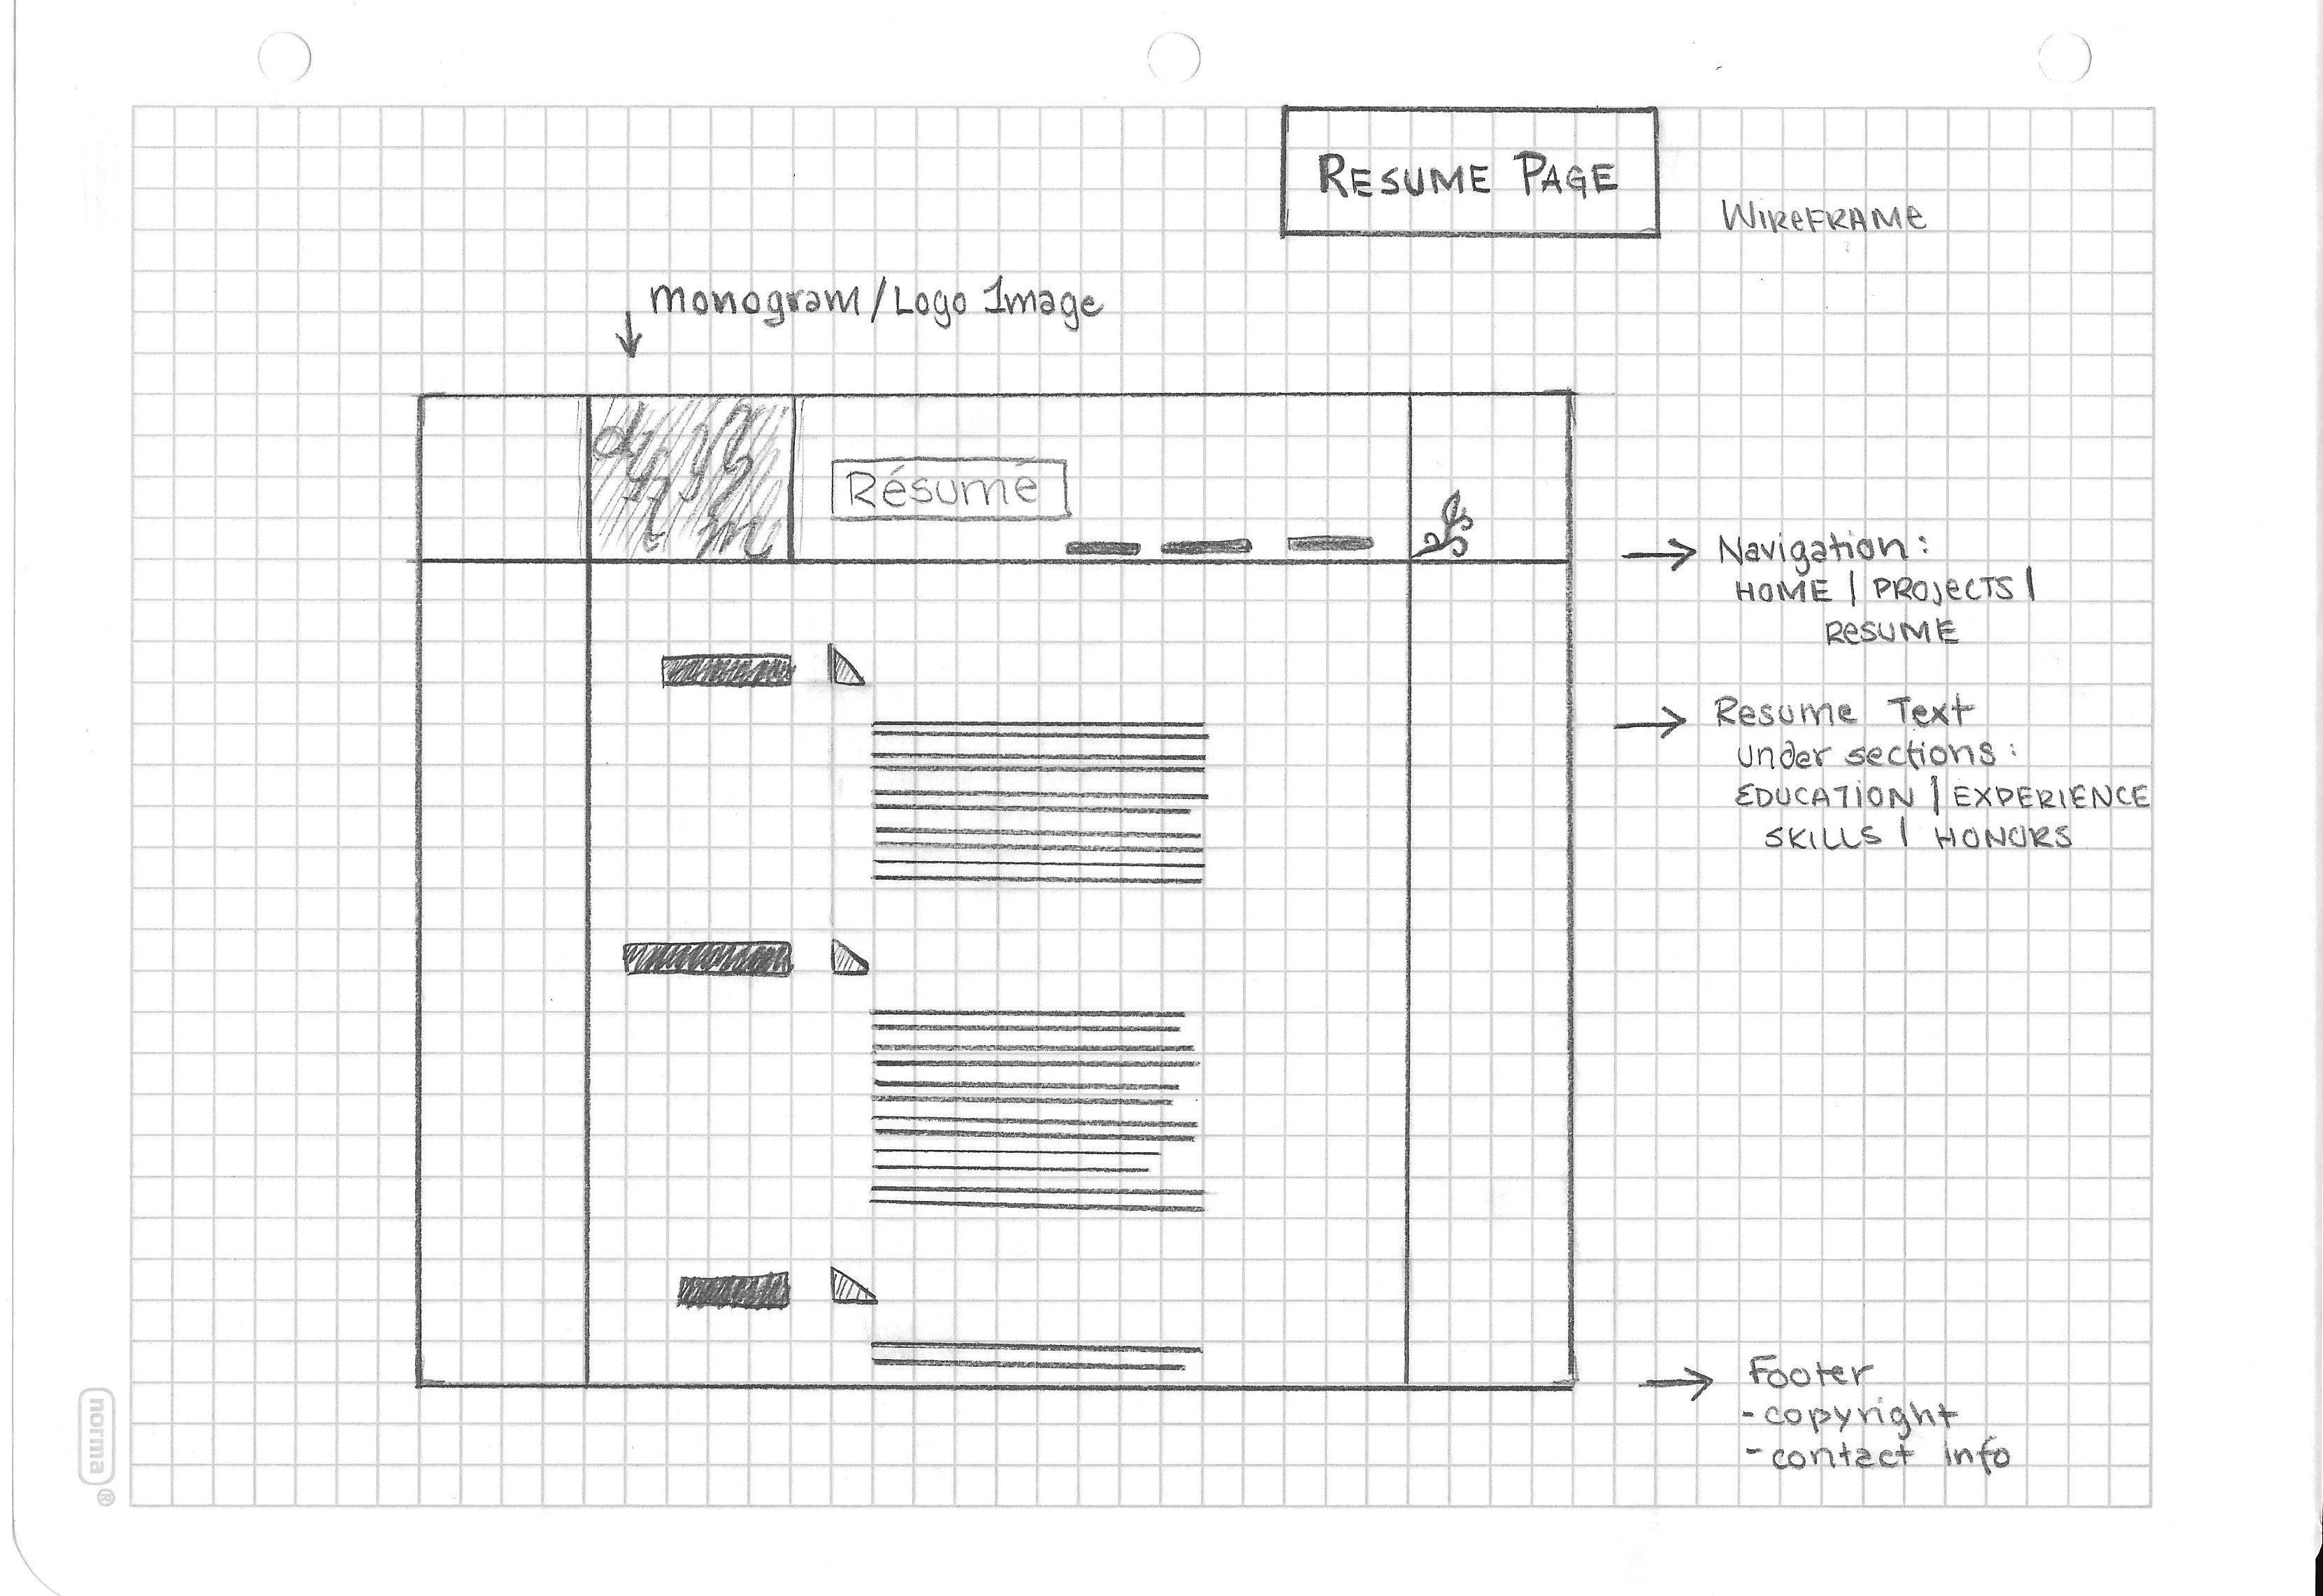 RESUME PAGE
WIREFRAME
monogram/Logo Image
Résumé
Navigation:
HOME | PROJECTS |
RESUME
Resume Text
under sections:
EDUCATION | EXPERIENCE
SKILLS | HONORS
Footer
-copyright
-contact info
norma®